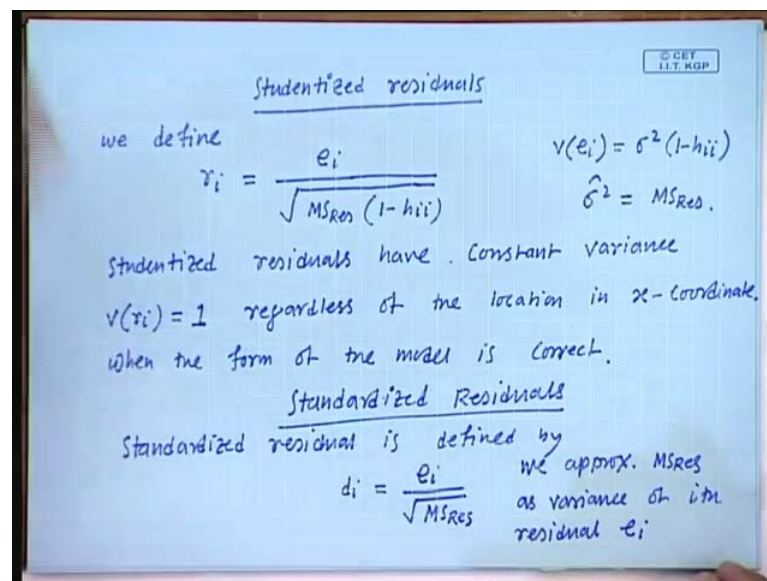 © CET
I.I.T. KGP
Studentized residuals
we define
r_i = e_i / √(MS_Res (1 - h_ii))
V(e_i) = σ² (1 - h_ii)
σ̂² = MS_Res.
Studentized residuals have . Constant variance
V(r_i) = 1 regardless of the location in x-coordinate.
when the form of the model is correct.
Standardized Residuals
Standardized residual is defined by
d_i = e_i / √MS_Res
we approx. MS_Res
as variance of ith
residual e_i